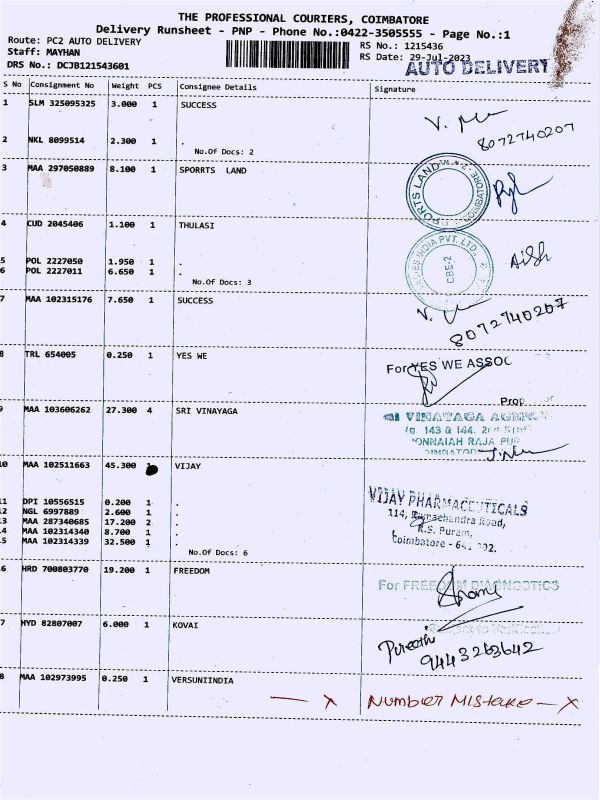 THE PROFESSIONAL COURIERS, COIMBATORE
Delivery Runsheet - PNP - Phone No.:0422-3505555 - Page No.:1
Route: PC2 AUTO DELIVERY
RS No.: 1215436
Staff: MAYHAN
RS Date: 29-Jul-2023
DRS No.: DCJB121543601
AUTO DELIVERY
S No Consignment No Weight PCS Consignee Details Signature
1 SLM 325095325 3.000 1 SUCCESS
8072740207
2 NKL 8099514 2.300 1 .
No.Of Docs: 2
3 MAA 297050889 8.100 1 SPORRTS LAND
PORTS LAND COIMBATORE - 2
4 CUD 2045406 1.100 1 THULASI
INDIA PVT. LTD.
CBE-2
5 POL 2227050 1.950 1 .
6 POL 2227011 6.650 1 .
No.Of Docs: 3
7 MAA 102315176 7.650 1 SUCCESS
8072740207
8 TRL 654005 0.250 1 YES WE
For YES WE ASSOC
Prop
9 MAA 103606262 27.300 4 SRI VINAYAGA
VINAYAGA AGEN
143 & 144, 2nd
ONNAIAH RAJA PU
10 MAA 102511663 45.300 VIJAY
VIJAY PHARMACEUTICALS
114, Ramachandra Road,
R.S. Puram,
Coimbatore - 641 002.
11 DPI 10556515 0.200 1 .
12 NGL 6997889 2.600 1 .
13 MAA 287340685 17.200 2 .
14 MAA 102314340 8.700 1 .
15 MAA 102314339 32.500 1 .
No.Of Docs: 6
6 HRD 700803770 19.200 1 FREEDOM
For FREEDOM DIAGNOSTICS
7 HYD 82807007 6.000 1 KOVAI
Preethi
9443263642
8 MAA 102973995 0.250 1 VERSUNIINDIA
— x NUMBER MISTAKE — x